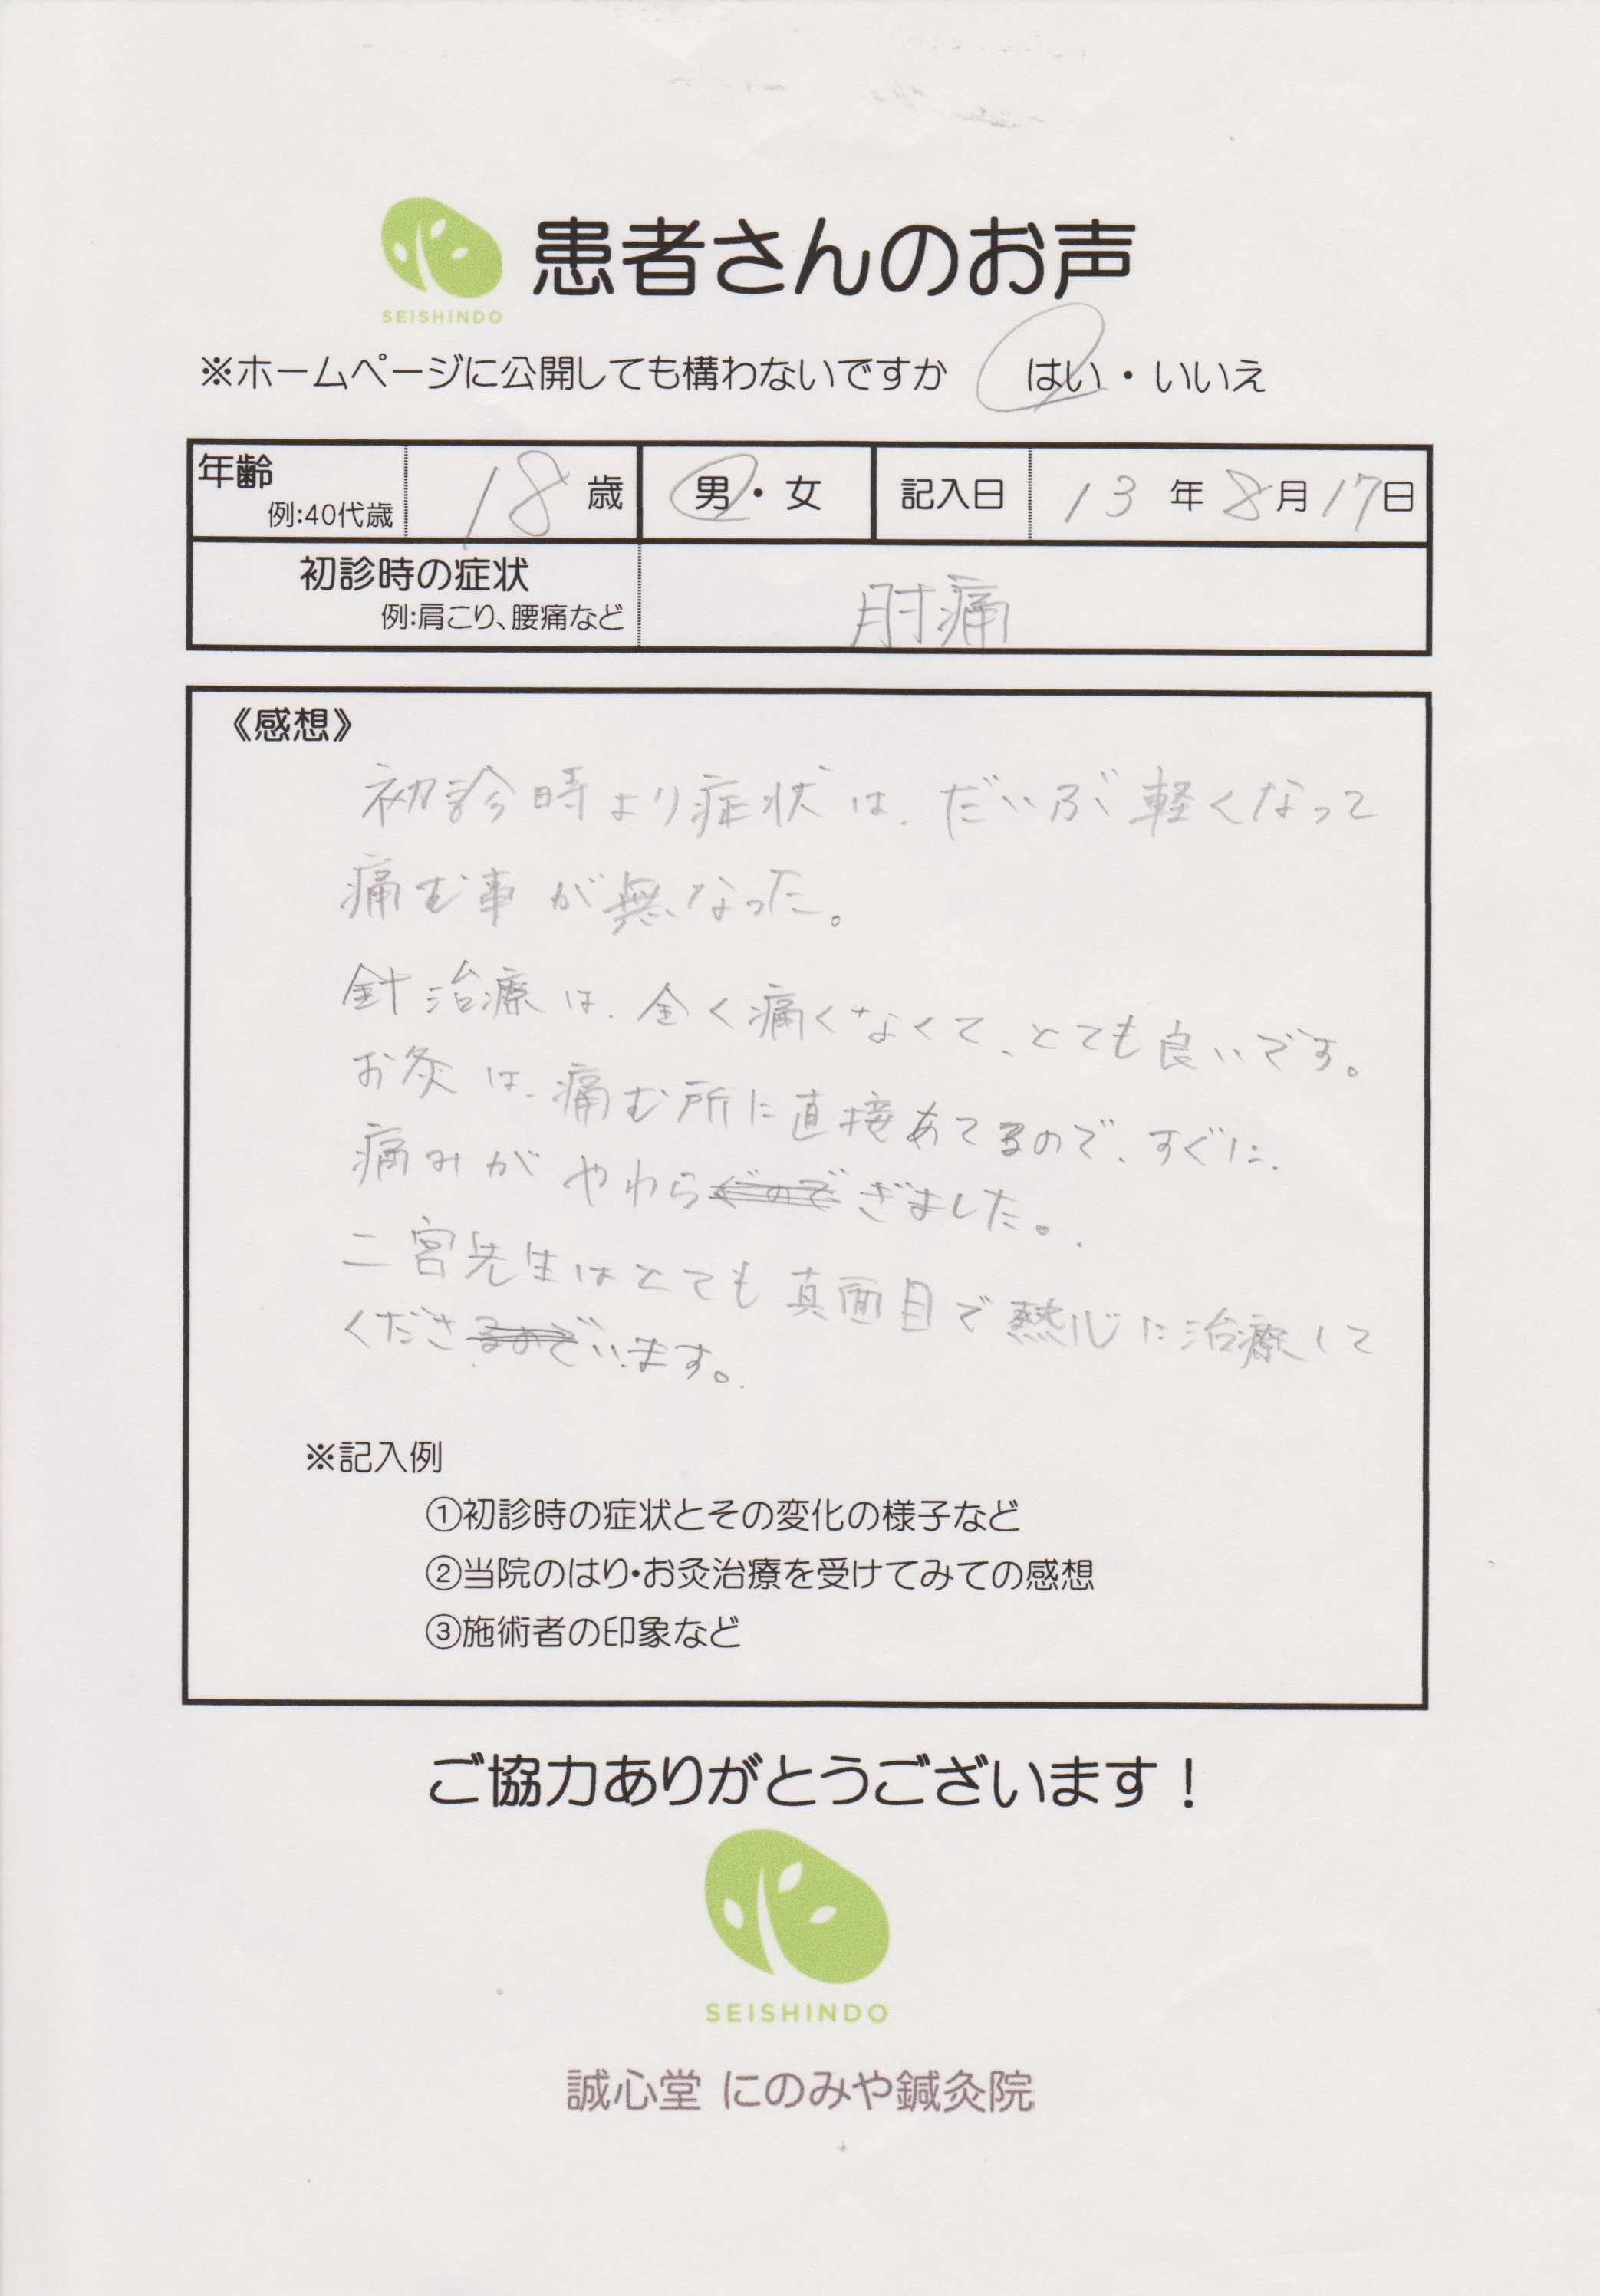 SEISHINDO
患者さんのお声
※ホームページに公開しても構わないですか はい・いいえ
年齢 例:40代歳 18歳 男・女 記入日 13年8月17日
初診時の症状 例:肩こり、腰痛など 肘痛
《感想》
初診時より症状は、だいぶ軽くなって
痛む事が無なった。
針治療は、全く痛くなくて、とても良いです。
お灸は、痛む所に直接あてるので、すぐに、
痛みがやわらぐのでぎました。
二宮先生はとても真面目で熱心に治療して
くださるのでいます。
※記入例
①初診時の症状とその変化の様子など
②当院のはり・お灸治療を受けてみての感想
③施術者の印象など
ご協力ありがとうございます！
SEISHINDO
誠心堂 にのみや鍼灸院